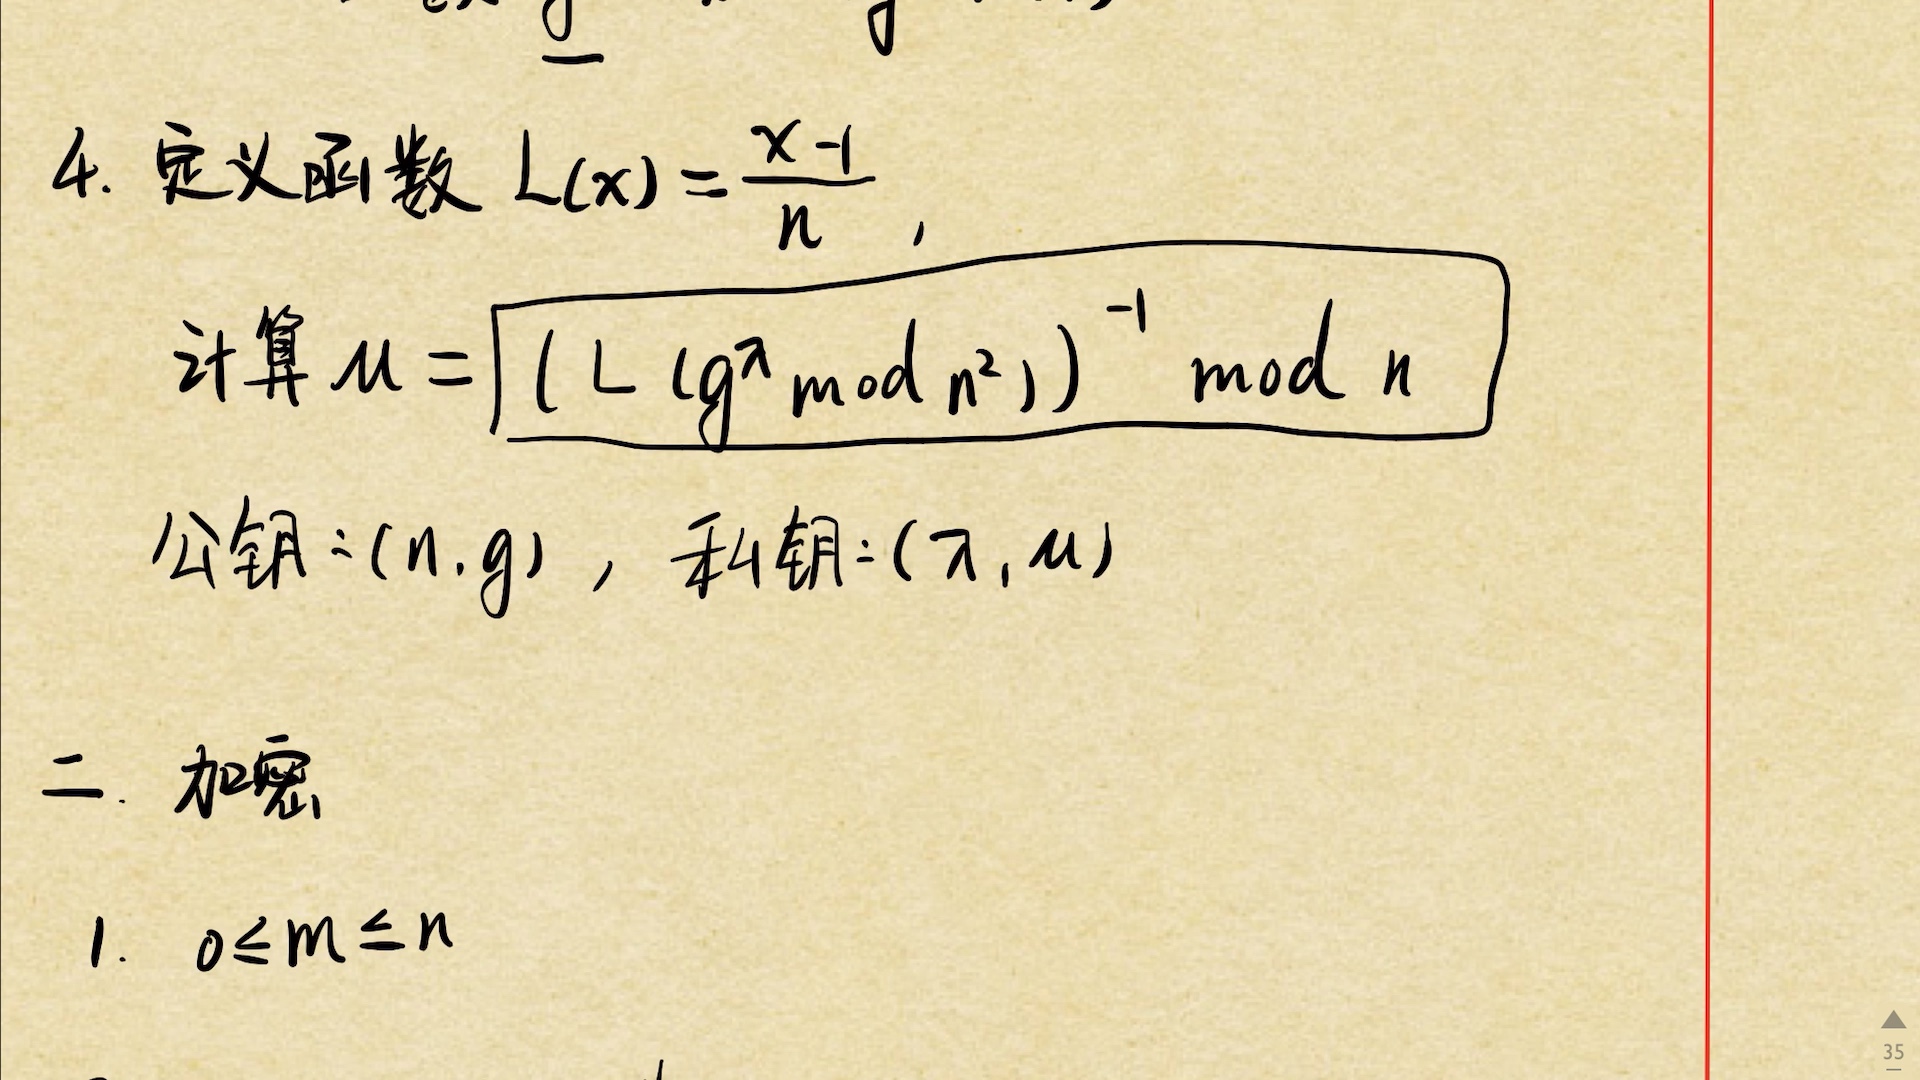 4. 定义函数 L(x) = \frac{x-1}{n} ,
计算 μ = (L (g^λ mod n²))^{-1} mod n
公钥:(n, g) , 私钥:(λ, μ)
二. 加密
1. 0 ≤ m ≤ n
35